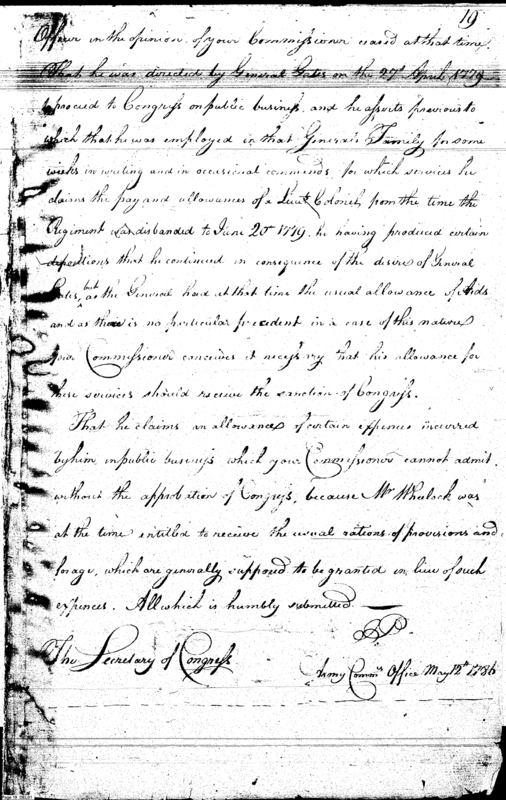 19
Officer in the opinion of your Commissioner ceased at that time.
That he was directed by General Gates on the 27th April 1779
to proceed to Congress on public business, and he asserts previous to
which that he was employed in that General's Family for some
weeks in writing and in occasional commands, for which services he
claims the pay and allowances of a Lieut. Colonel, from the time the
Regiment was disbanded to June 20th 1779, he having produced certain
depositions that he continued in consequence of the desire of General
Gates, but as the General had at that time the usual allowance of Aids
and as there is no particular precedent in a case of this nature
your Commissioner conceives it necessary that his allowance for
these services should receive the sanction of Congress.
That he claims an allowance of certain expences incurred
by him in public business which your Commissioner cannot admit.
without the approbation of Congress, because Mr. Whelock was
at the time entitled to receive the usual rations of provisions and
forage, which are generally supposed to be granted in lieu of such
expences. All which is humbly submitted
The Secretary of Congress
Army Commrs Office May 12th 1786